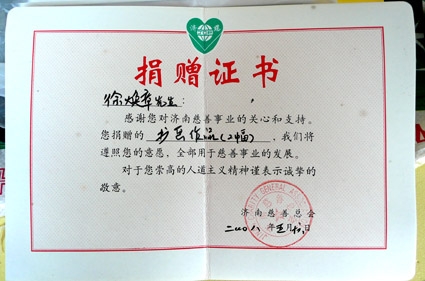 济 慈
捐赠证书
徐焕章先生：
感谢您对济南慈善事业的关心和支持。
您捐赠的 书画作品(2幅)，我们将
遵照您的意愿，全部用于慈善事业的发展。
对于您崇高的人道主义精神谨表示诚挚的
敬意。
济南慈善总会
二00八年五月 日